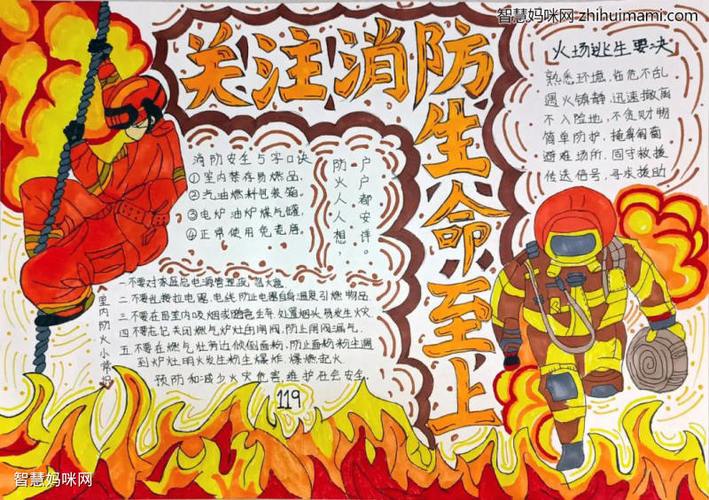 智慧妈咪网 zhihuimami.com
关注消防
生命至上
火场逃生要决
熟悉环境,临危不乱
遇火镇静,迅速撤离
不入险地,不贪财物
简单防护,掩鼻匍匐
避难场所,固守救援
传送信号,寻求援助
消防安全与字口诀
①室内禁存易燃品,
②汽油燃料包装箱。
③电炉油炉煤气罐,
④正常使用免衷唐
户户都安洋。
防火人人想,
室内防火小常识
二不要乱
电线,防止电器自身温度引燃物品
三不要在居室内吸烟或
烟头易发生火灾
四不要忘记关闭燃气炉灶的闸阀,防止闸阀漏气,
五不要在燃气灶旁边倾倒面粉,防止面粉粉尘遇
到炉灶明火发生粉尘爆炸 爆燃起火
预防和减少火灾危害,维护社会安全.
119
智慧妈咪网